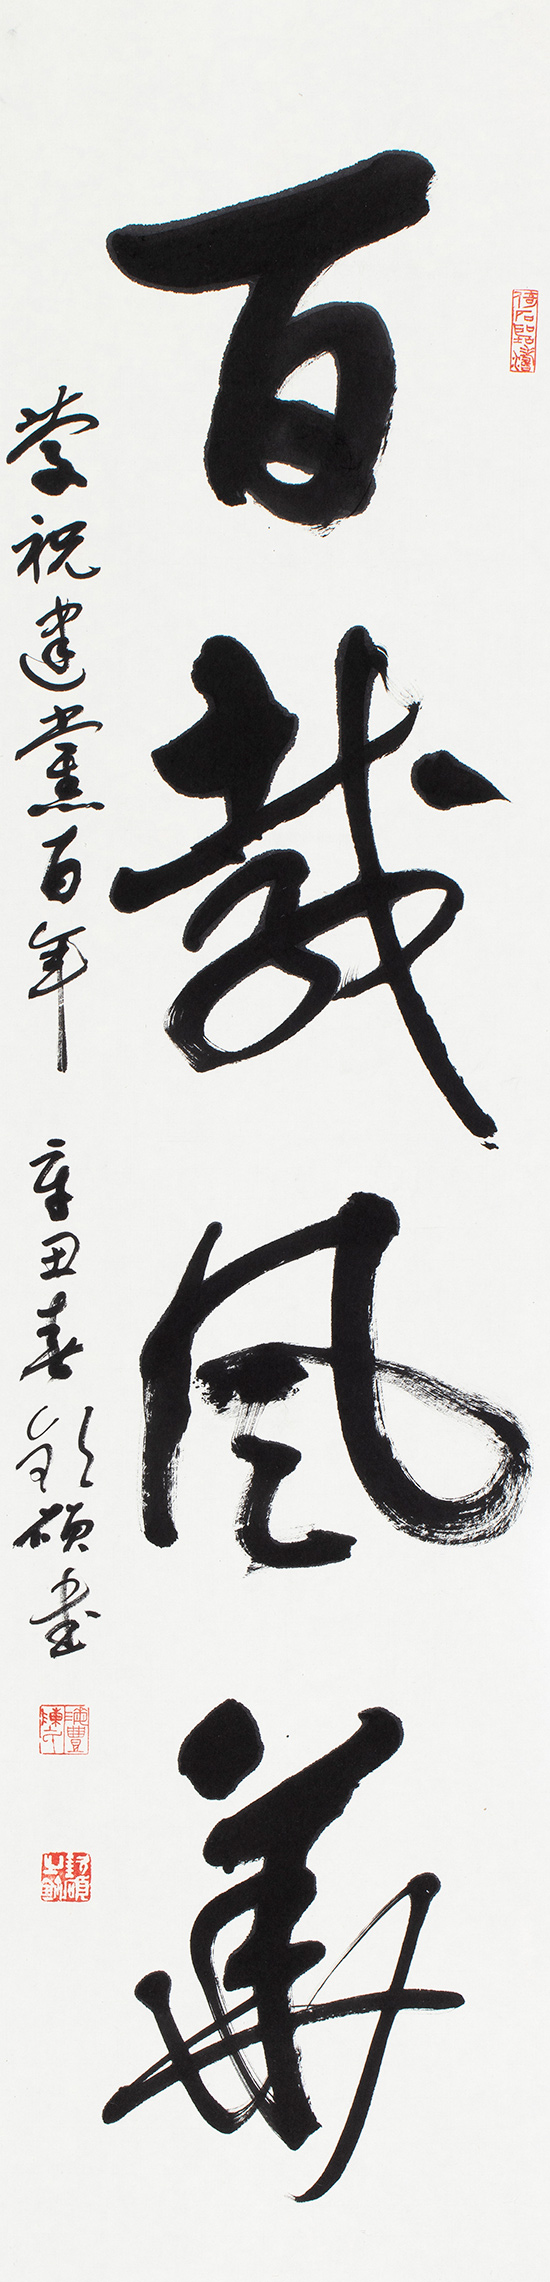 百載風華
祝建黨百年 辛丑春 欽碩書